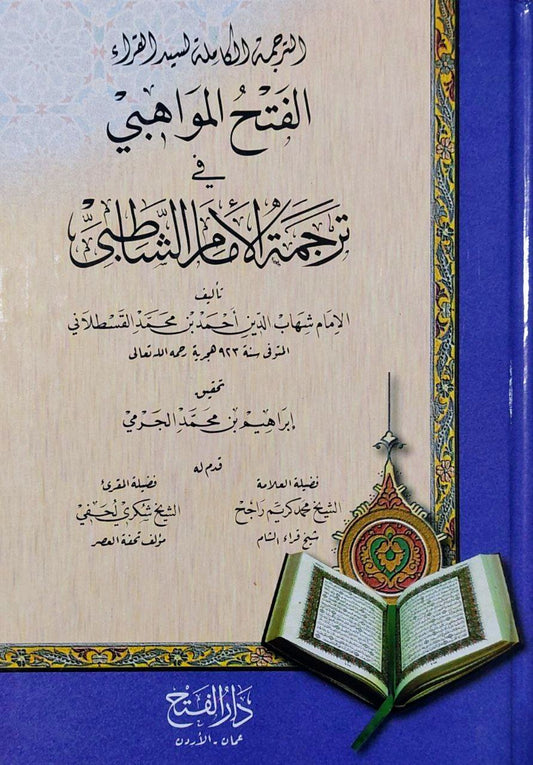 الترجمة الكاملة لسيد القراء
الفَتْحُ المَوَاهِبيْ
في
تَرجَمَةِ الأَمَامِ الشَّاطِبيِّ
تأليف
الإمام شهاب الدين أحمد بن محمد القسطلاني
المتوفى سنة ٩٢٣ هجرية رحمه الله تعالى
تحقيق
إبراهيم بن محمد الجرمي
قدم له
فضيلة العلامة
الشيخ محمد كريم راجح
شيخ قراء الشام
فضيلة المقرئ
الشيخ شكري لحفي
مؤلف تحفة العصر
دار الفتح
عمان - الأردن